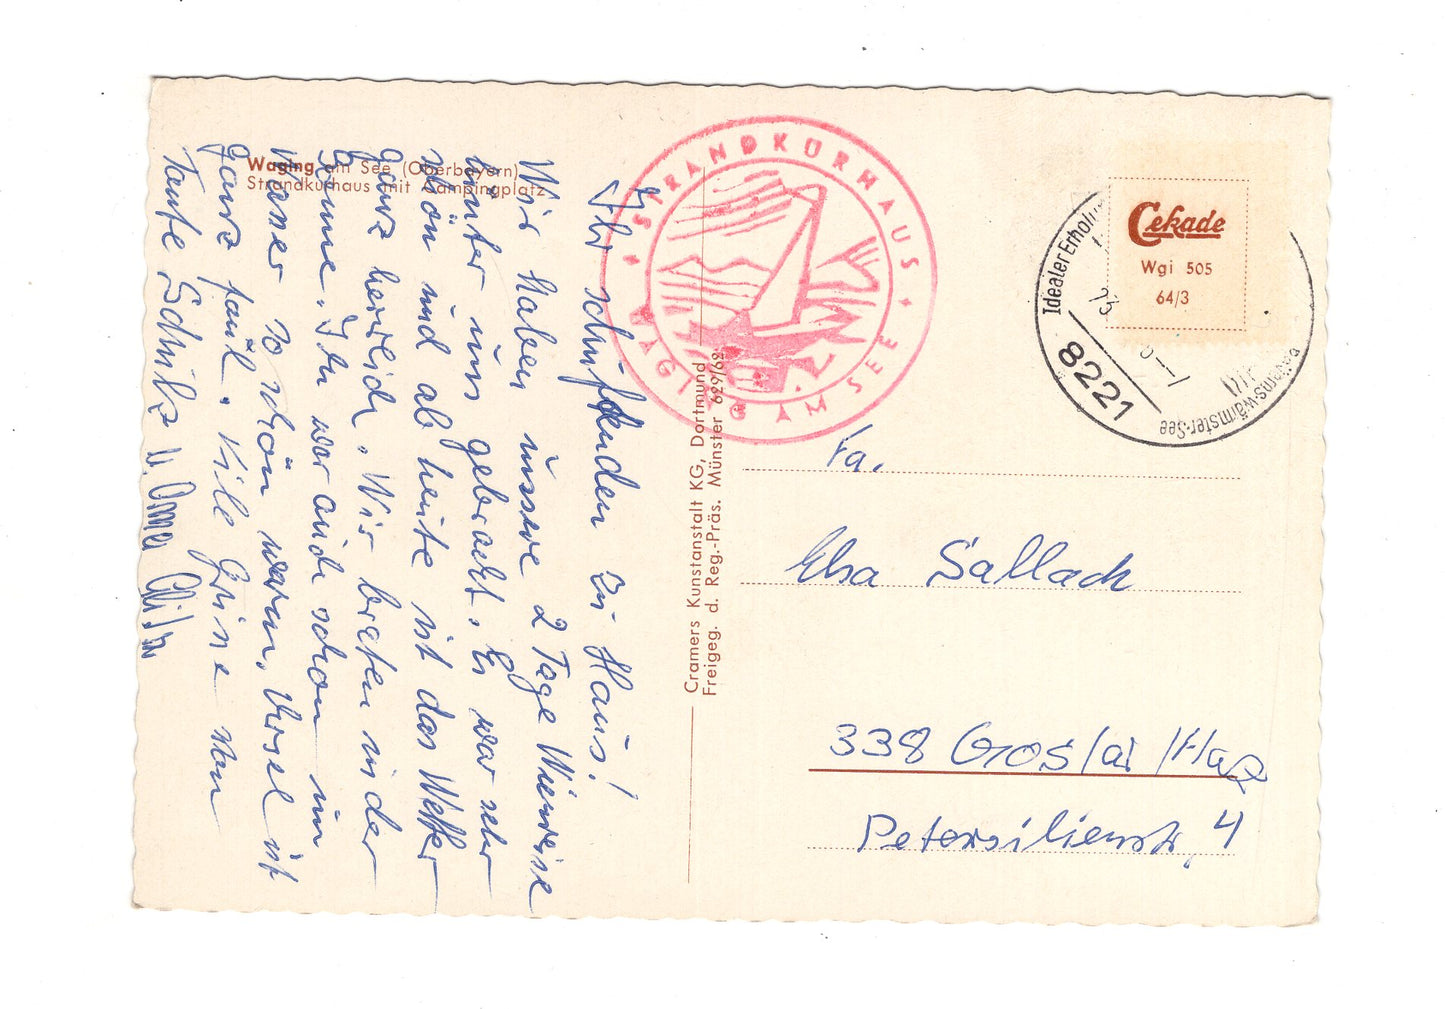 Waging am See (Oberbayern)
Strandkurhaus mit Campingplatz
STRANDKURHAUS
WAGING AM SEE
Cekade
Wgi 505
64/3
Idealer Erholu
8221
wärmster-See
Cramers Kunstanstalt KG, Dortmund
Freigeg. d. Reg.-Präs. Münster 629/62
Ihr schufenden zu Haus!
Wir haben unsere 2 Tage Wienreise
hinter uns gebracht. Es war sehr
schön und ab heute ist das Wetter
ganz herrlich. Wir braten in der
Sonne. Ihr war auch schon im
Wasser so schön warm. Ursel ist
ganz faul. Viele Grüße von
Tante Schulz u. Oma
Fa.
Elsa Sallach
338 Goslar/Harz
Petersilienstr, 4